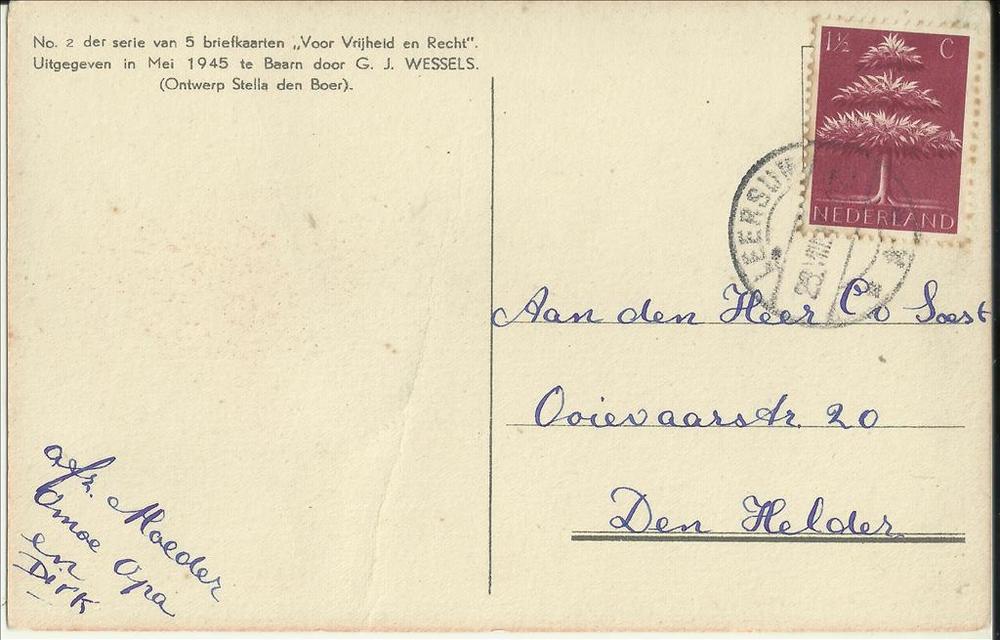 No. 2 der serie van 5 briefkaarten „Voor Vrijheid en Recht”.
Uitgegeven in Mei 1945 te Baarn door G. J. WESSELS.
(Ontwerp Stella den Boer).
1½ C
NEDERLAND
LEERSUM
28.VIII
Aan den Heer Co Soest
Ooievaarstr. 20
Den Helder
afz. Moeder
Omoe Opa
en
Dirk